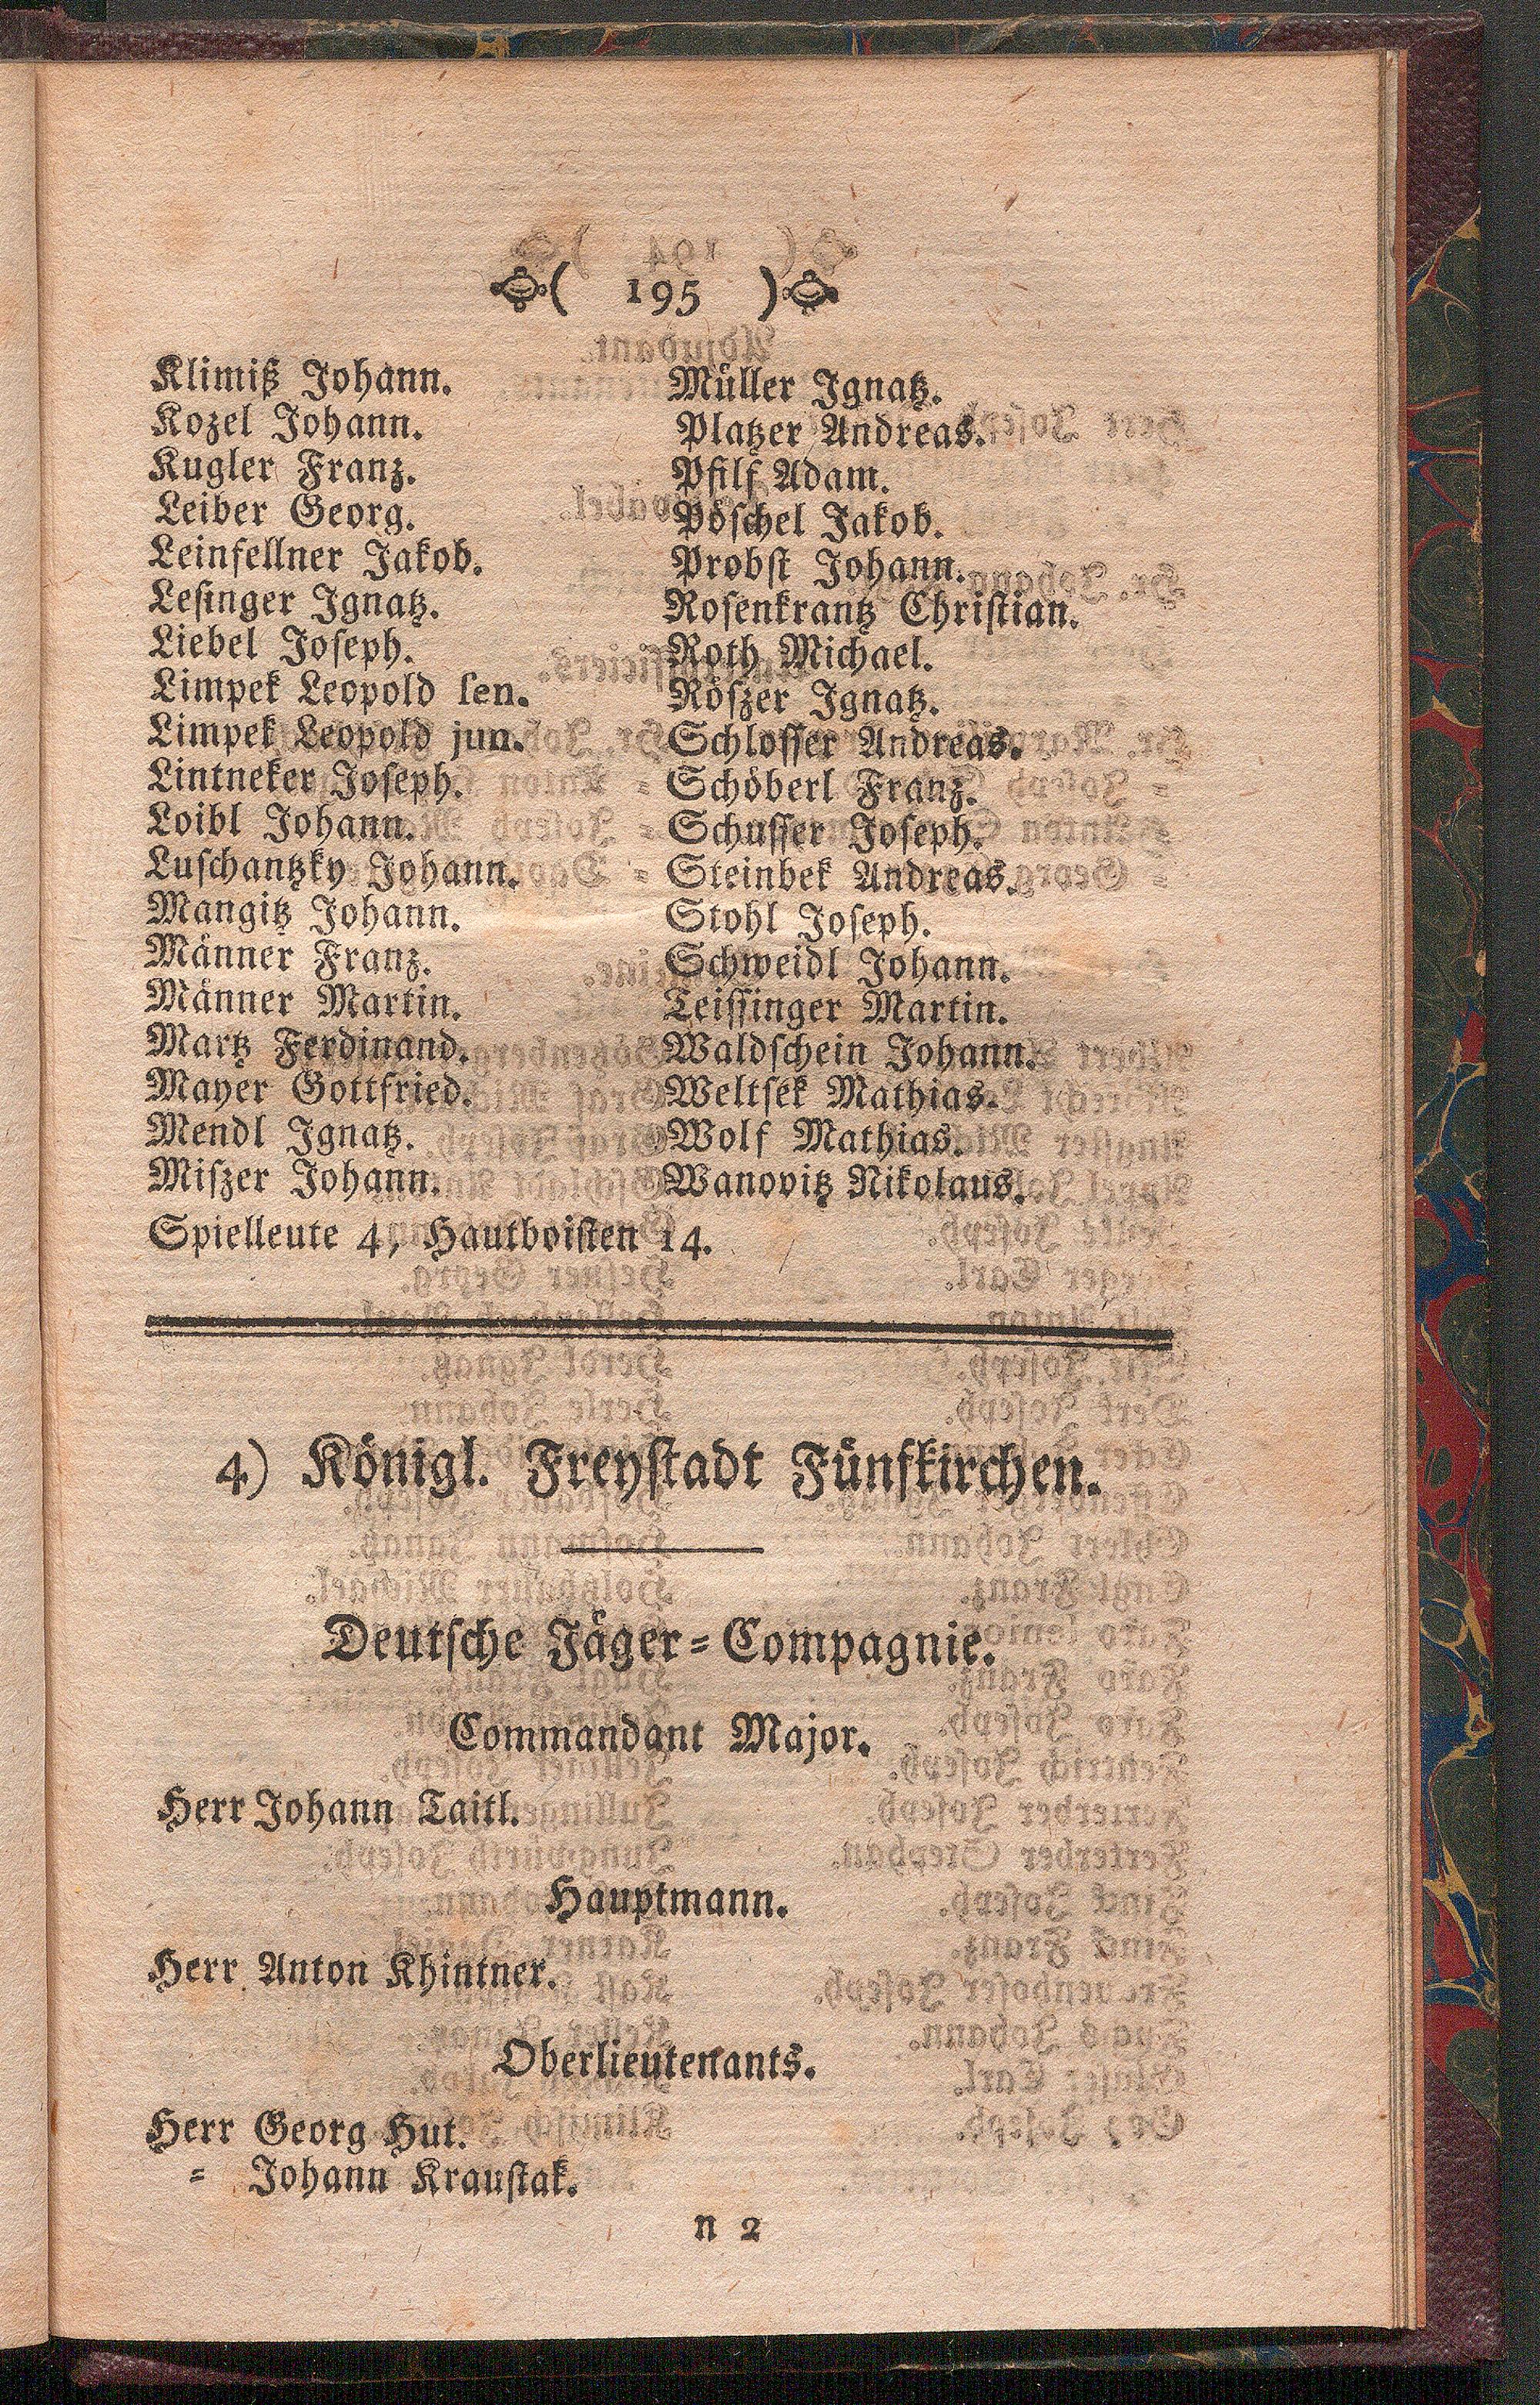 ( 195 )
Klimiß Johann.
Kozel Johann.
Kugler Franz.
Leiber Georg.
Leinfellner Jakob.
Lesinger Ignatz.
Liebel Joseph.
Limpek Leopold sen.
Limpek Leopold jun.
Lintneker Joseph.
Loibl Johann.
Luschantzky Johann.
Mangitz Johann.
Männer Franz.
Männer Martin.
Martz Ferdinand.
Mayer Gottfried.
Mendl Ignatz.
Miszer Johann.
Müller Ignatz.
Platzer Andreas.
Pfilf Adam.
Pöschel Jakob.
Probst Johann.
Rosenkrantz Christian.
Roth Michael.
Röszer Ignatz.
Schlosser Andreas.
Schöberl Franz.
Schusser Joseph.
Steinbek Andreas.
Stohl Joseph.
Schweidl Johann.
Teissinger Martin.
Waldschein Johann.
Weltsek Mathias.
Wolf Mathias.
Wanovitz Nikolaus.
Spielleute 4, Hautboisten 14.
4) Königl. Freystadt Fünfkirchen.
Deutsche Jäger=Compagnie.
Commandant Major.
Herr Johann Taitl.
Hauptmann.
Herr Anton Khintner.
Oberlieutenants.
Herr Georg Hut.
= Johann Kraustak.
n 2